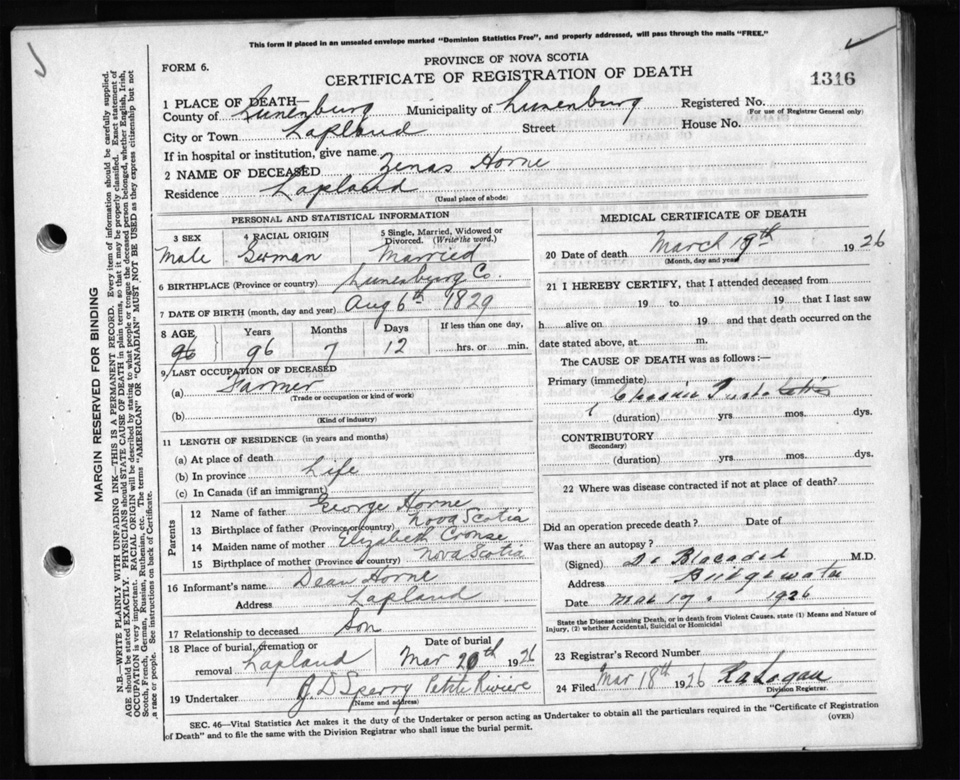 This form if placed in an unsealed envelope marked "Dominion Statistics Free", and properly addressed, will pass through the mails "FREE."
FORM 6.
PROVINCE OF NOVA SCOTIA
CERTIFICATE OF REGISTRATION OF DEATH
1316
1 PLACE OF DEATH—
County of Lunenburg Municipality of Lunenburg Registered No.
(For use of Registrar General only)
City or Town Lapland Street House No.
If in hospital or institution, give name
2 NAME OF DECEASED Zenas Horne
Residence Lapland
(Usual place of abode)
PERSONAL AND STATISTICAL INFORMATION
3 SEX 4 RACIAL ORIGIN 5 Single, Married, Widowed or Divorced. (Write the word.)
Male German Married
6 BIRTHPLACE (Province or country) Lunenburg Co.
7 DATE OF BIRTH (month, day and year) Aug 6th 1829
8 AGE Years Months Days If less than one day,
96 96 7 12 hrs. or min.
9 LAST OCCUPATION OF DECEASED
(a) Farmer
(Trade or occupation or kind of work)
(b)
(Kind of industry)
11 LENGTH OF RESIDENCE (in years and months)
(a) At place of death
(b) In province Life
(c) In Canada (if an immigrant)
Parents
12 Name of father George Horne
13 Birthplace of father (Province or country) Nova Scotia
14 Maiden name of mother Elizabeth Crouse
15 Birthplace of mother (Province or country) Nova Scotia
16 Informant's name Dean Horne
Address Lapland
17 Relationship to deceased Son
18 Place of burial, cremation or removal Lapland Date of burial Mar 20th 1926
19 Undertaker J D Sperry Petite Riviere
(Name and address)
MEDICAL CERTIFICATE OF DEATH
20 Date of death March 17th 1926
(Month, day and year)
21 I HEREBY CERTIFY, that I attended deceased from
19 to 19 that I last saw
h alive on 19 and that death occurred on the
date stated above, at m.
The CAUSE OF DEATH was as follows:—
Primary (immediate)
(duration) yrs. mos. dys.
CONTRIBUTORY
(Secondary)
(duration) yrs. mos. dys.
22 Where was disease contracted if not at place of death?
Did an operation precede death? Date of
Was there an autopsy?
(Signed) M.D.
Address Bridgewater
Date Mar 17 1926
State the Disease causing Death, or in death from Violent Causes, state (1) Means and Nature of Injury, (2) whether Accidental, Suicidal or Homicidal
23 Registrar's Record Number
24 Filed Mar 18th 1926
Division Registrar.
SEC. 46—Vital Statistics Act makes it the duty of the Undertaker or person acting as Undertaker to obtain all the particulars required in the "Certificate of Registration
of Death" and to file the same with the Division Registrar who shall issue the burial permit.
(OVER)
MARGIN RESERVED FOR BINDING
N.B.—WRITE PLAINLY WITH UNFADING INK—THIS IS A PERMANENT RECORD. Every item of information should be carefully supplied.
AGE should be stated EXACTLY. PHYSICIANS should STATE CAUSE OF DEATH in plain terms, so that it may be properly classified. Exact statement of
OCCUPATION is very important. RACIAL ORIGIN will be described by stating to what people or tongue the deceased person belonged, whether English, Irish,
Scotch, French, German, Russian, Ruthenian, etc. The terms "AMERICAN" OR "CANADIAN" MUST NOT BE USED as they express citizenship but not
a race or people. See instructions on back of Certificate.